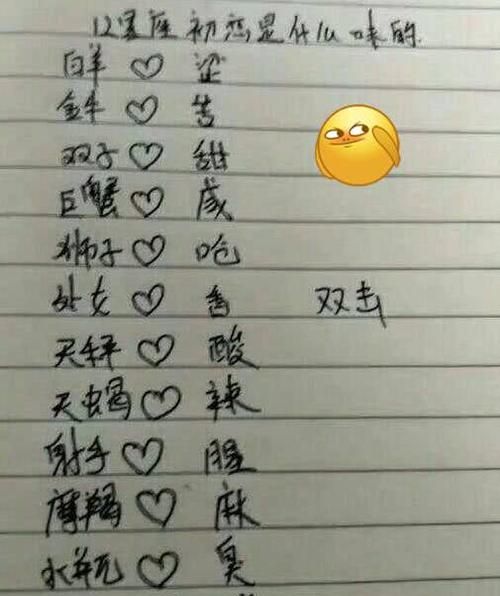 12星座初恋是什么味的.
白羊♡涩
金牛♡苦
双子♡甜
巨蟹♡咸
狮子♡呛
处女♡香 双击
天秤♡酸
天蝎♡辣
射手♡腥
摩羯♡麻
水瓶♡臭